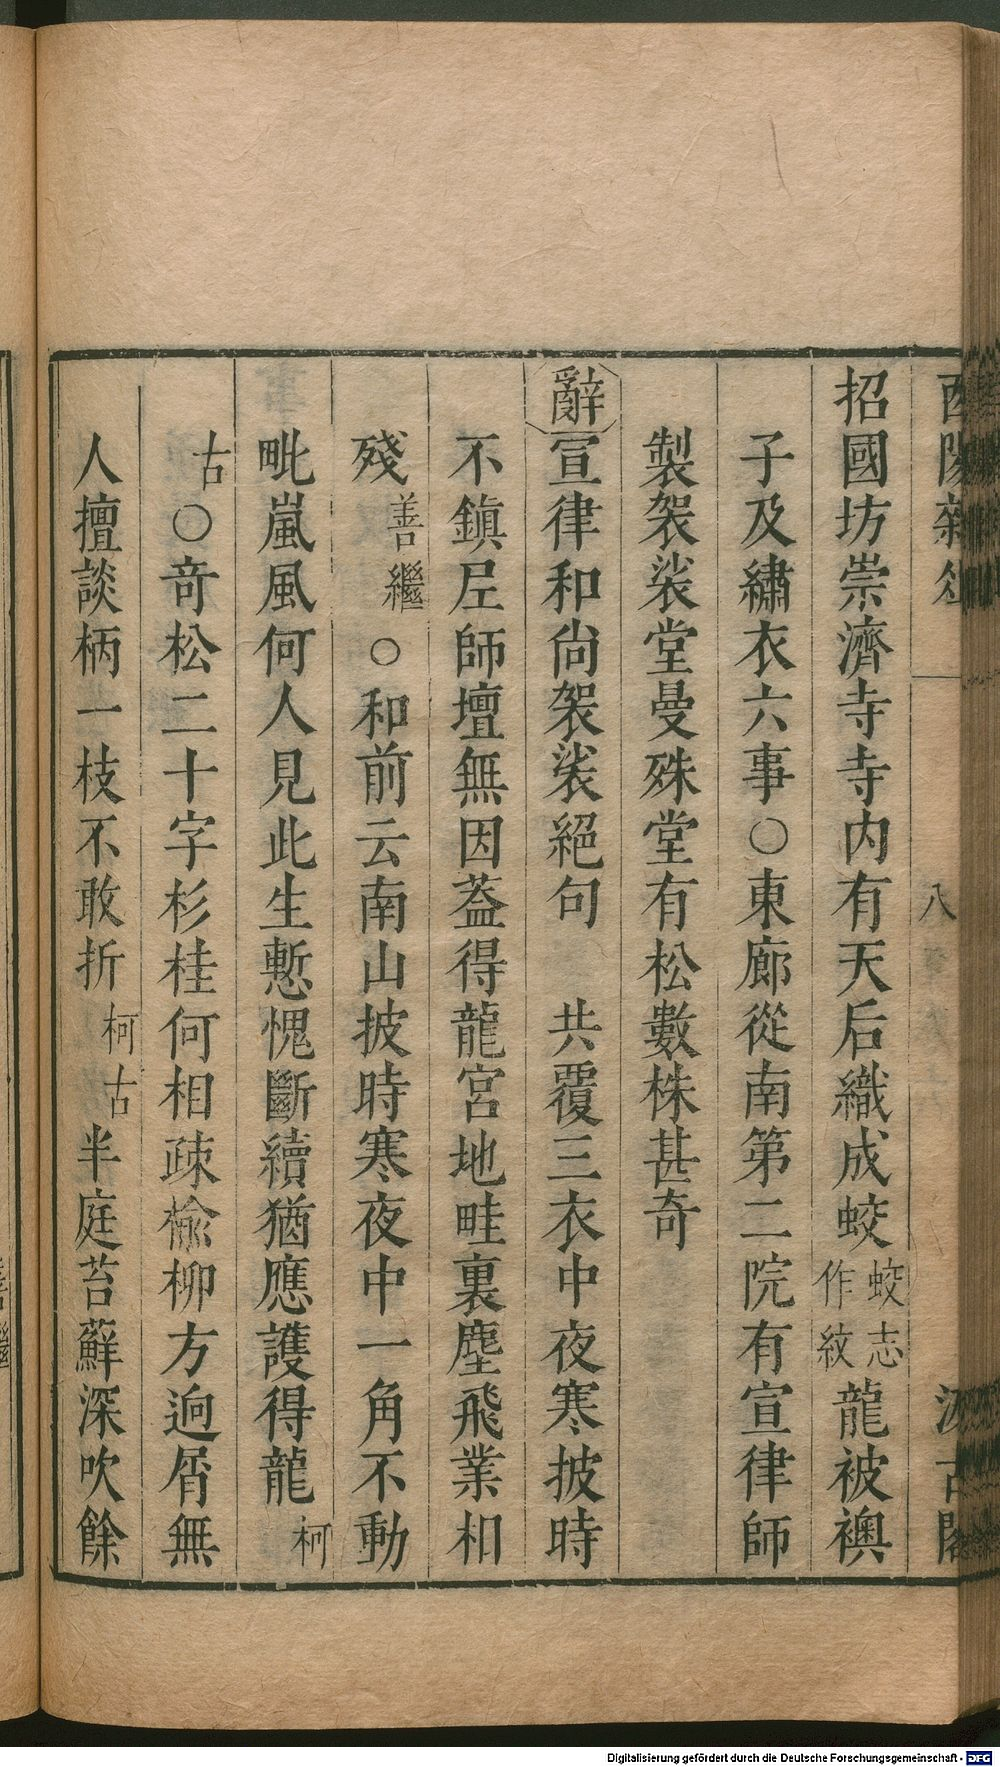 酉陽雜俎 八 汲古閣
招國坊崇濟寺寺内有天后織成蛟蛟志作紋龍被襖
子及繡衣六事○東廊從南第二院有宣律師
製袈裟堂曼殊堂有松數株甚奇
辭宣律和尚袈裟絕句 共覆三衣中夜寒披時
不鎮尼師壇無因葢得龍宮地畦裏塵飛業相
殘善繼○和前云南山披時寒夜中一角不動
毗嵐風何人見此生慙愧斷續猶應護得龍柯
古○奇松二十字杉桂何相疎榆柳方迥屑無
人擅談柄一枝不敢折柯古半庭苔蘚深吹餘
善繼
Digitalisierung gefördert durch die Deutsche Forschungsgemeinschaft - DFG